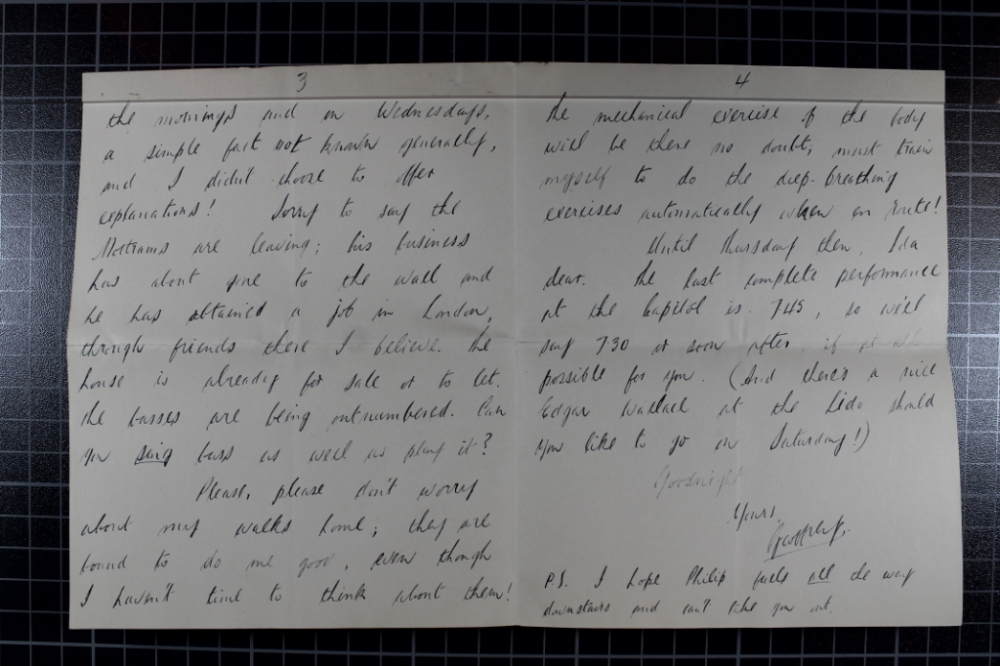 3
the mornings and on Wednesdays,
a simple fact not known generally,
and I didn't choose to offer
explanations! Sorry to say the
Mottrams are leaving; his business
has about gone to the wall and
he has obtained a job in London,
through friends there I believe. The
house is already for sale or to let.
The basses are being outnumbered. Can
you sing bass as well as play it?
Please, please don't worry
about my walks home; they are
bound to do me good, even though
I haven't time to think about them!
4
The mechanical exercise of the body
will be there no doubt; must train
myself to do the deep-breathing
exercises automatically when en route!
Until Thursday then, Ida
dear. The last complete performance
at the Capitol is 7.45, so we'll
say 7.30 or soon after, if at all
possible for you. (And there's a nice
Edgar Wallace at the Lido should
you like to go on Saturday!)
Goodnight
Yours,
Geoffrey.
P.S. I hope Philip falls all the way
downstairs and can't take you out.